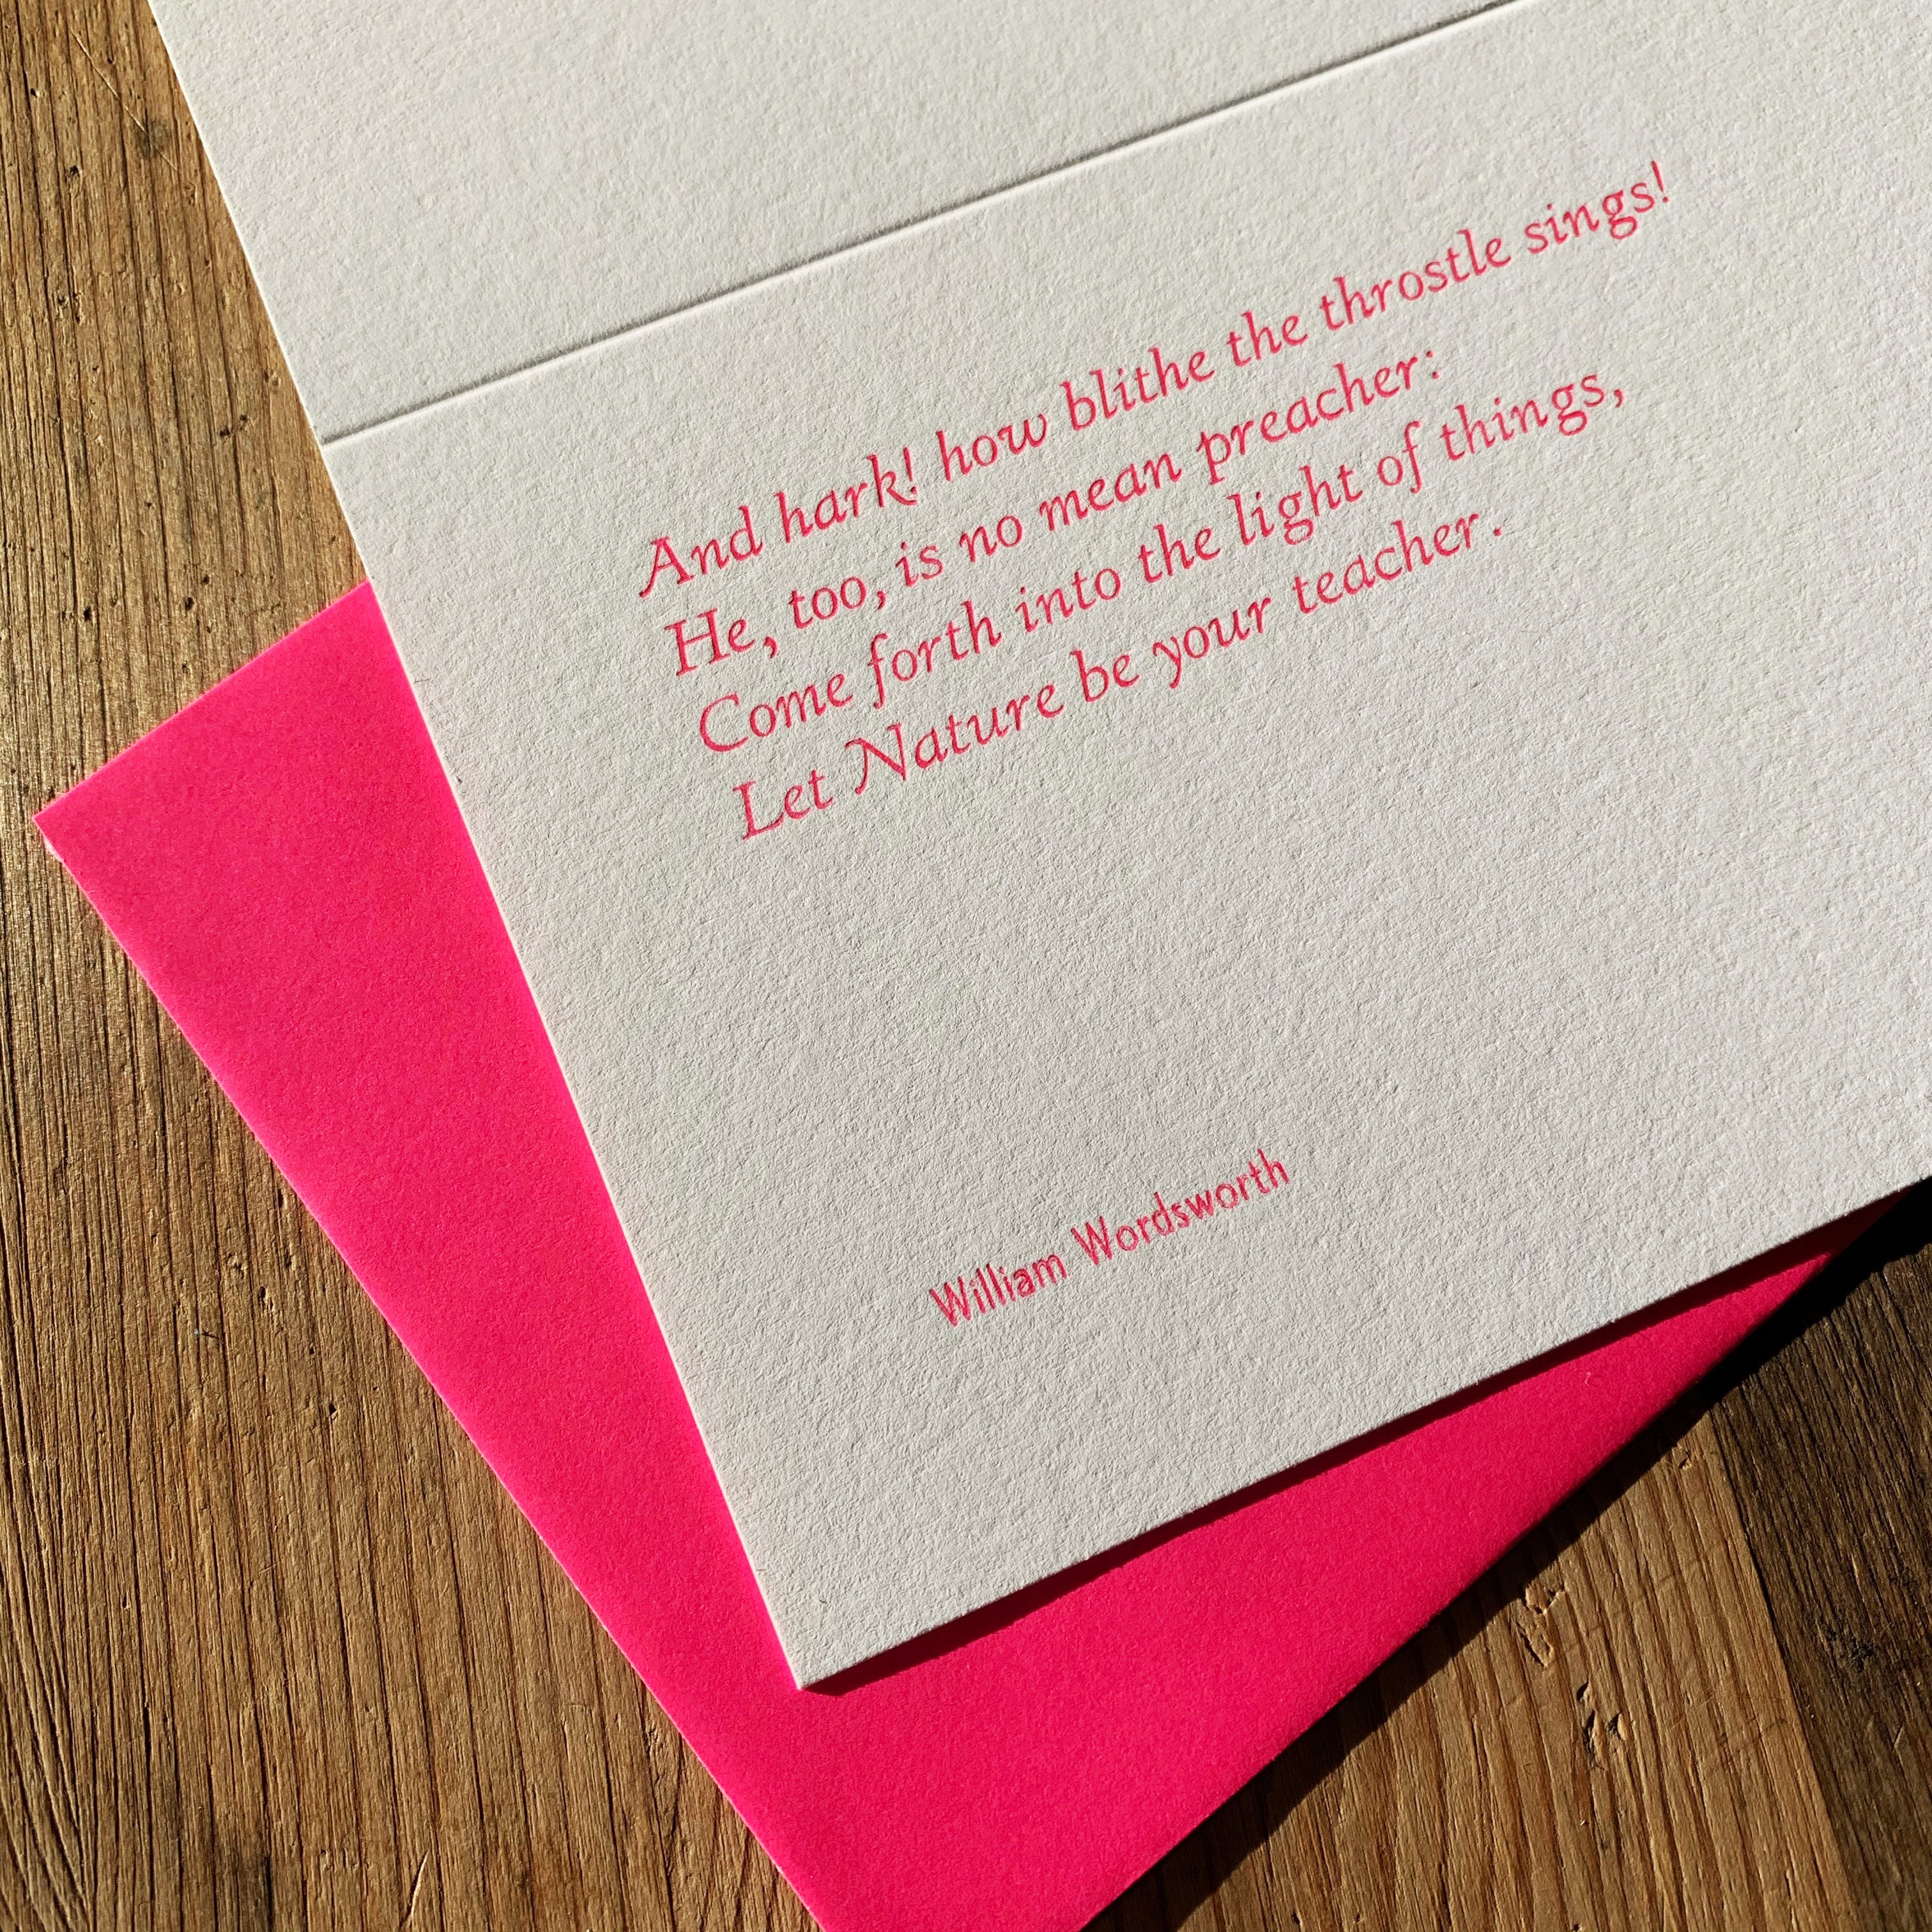 And hark! how blithe the throstle sings!
He, too, is no mean preacher:
Come forth into the light of things,
Let Nature be your teacher.
William Wordsworth